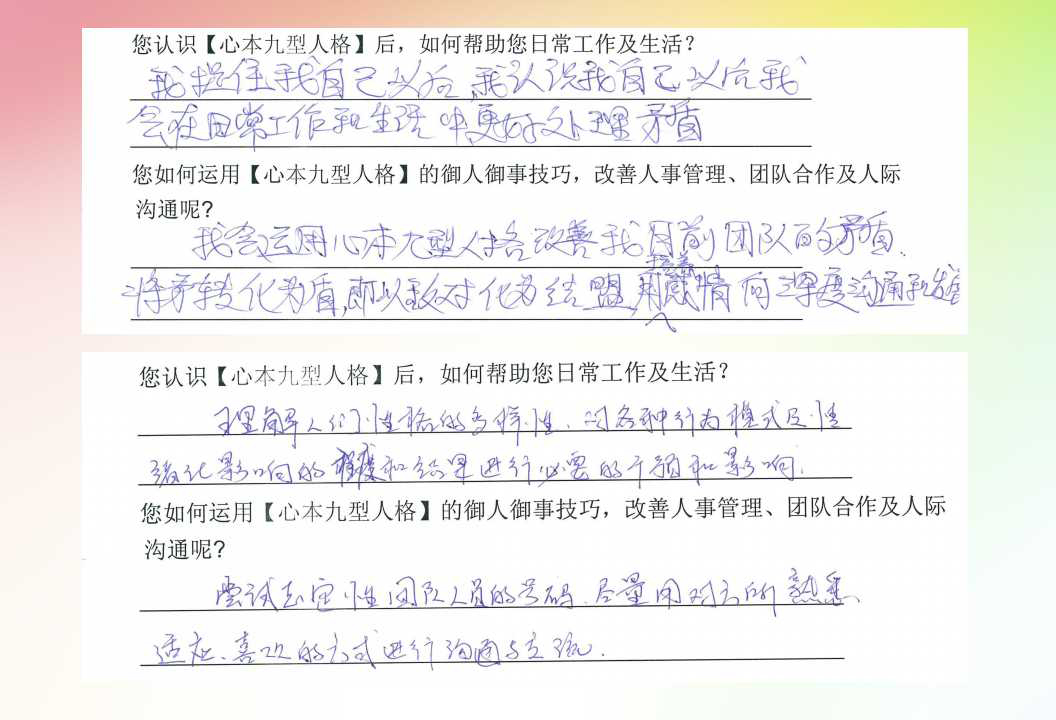 您认识【心本九型人格】后，如何帮助您日常工作及生活？
我捉住我自己以后，我认识我自己以后我
会在日常工作和生活中更好处理矛盾
您如何运用【心本九型人格】的御人御事技巧，改善人事管理、团队合作及人际
沟通呢？
我会运用心本九型人格改善我目前团队的矛盾.
将矛转化为盾,即以敌对化为结盟,用感情向深度沟通和
您认识【心本九型人格】后，如何帮助您日常工作及生活？
理解人们性格的多样性、对各种行为模式及性
影响的程度和结果进行必要的干预和影响.
您如何运用【心本九型人格】的御人御事技巧，改善人事管理、团队合作及人际
沟通呢？
尝试去定性团队人员的号码.尽量用对方所熟悉、
适应、喜欢的方式进行沟通与交流.